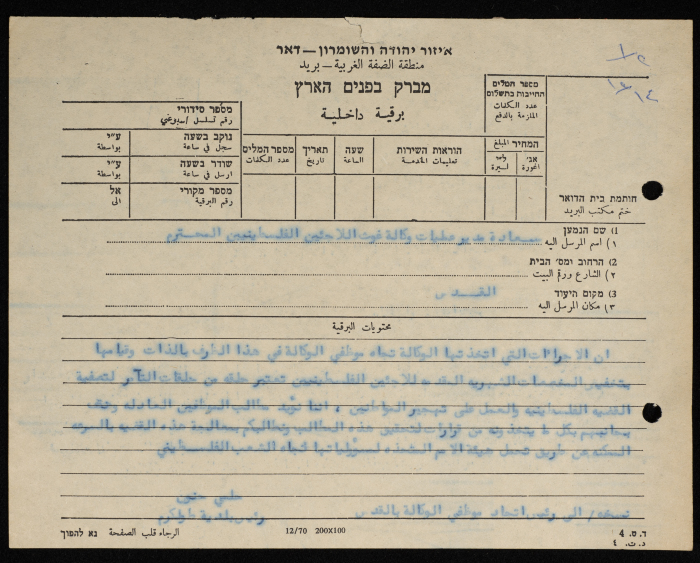 איזור יהודה והשומרון – דאר
منطقة الضفة الغربية – بريد
מברק בפנים הארץ
برقية داخلية
מספר המלים
החייבות בתשלום
عدد الكلمات
الملزمة بالدفع
המחיר المبلغ
אג'
اغورة
ל"י
ليرة
חותמת בית הדואר
ختم مكتب البريد
הוראות השירות
تعليمات الخدمة
שעה
الساعة
תאריך
تاريخ
מספר המלים
عدد الكلمات
מספר סידורי
رقم تسلسل
נוקב בשעה
سجل في ساعة
ע"י
بواسطة
שודר בשעה
ارسل في ساعة
ע"י
بواسطة
מספר מקורי
رقم البرقية
אל
الى
1) שם הנמען
١) اسم المرسل اليه
سعادة مدير عمليات وكالة غوث اللاجئين الفلسطينيين المحترم
2) הרחוב ומס' הבית
٢) الشارع ورقم البيت
3) מקום היעוד
٣) مكان المرسل اليه
القدس
محتويات البرقية
ان الاجراءات التي اتخذتها الوكالة تجاه موظفي الوكالة في هذا الظرف بالذات وقيامها
بتخفيض الخدمات الضرورية المقدمة للاجئين الفلسطينيين تعتبر حلقة من حلقات التآمر لتصفية
القضية الفلسطينية والعمل على تهجير المواطنين ، اننا نؤيد مطالب الموظفين العادلة ونقف
بجانبهم بكل ما يتخذونه من قرارات لتحقيق هذه المطالب ونطالبكم بمعالجة هذه القضية بالسرعة
الممكنة عن طريق تحمل هيئة الامم المتحدة لمسؤولياتها تجاه الشعب الفلسطيني
حلمي حنون
رئيس بلدية طولكرم
نسخة / الى رئيس اتحاد موظفي الوكالة بالقدس
ד. ס. 4
د. ت. ٤
12/70 200X100
الرجاء قلب الصفحة נא להפוך